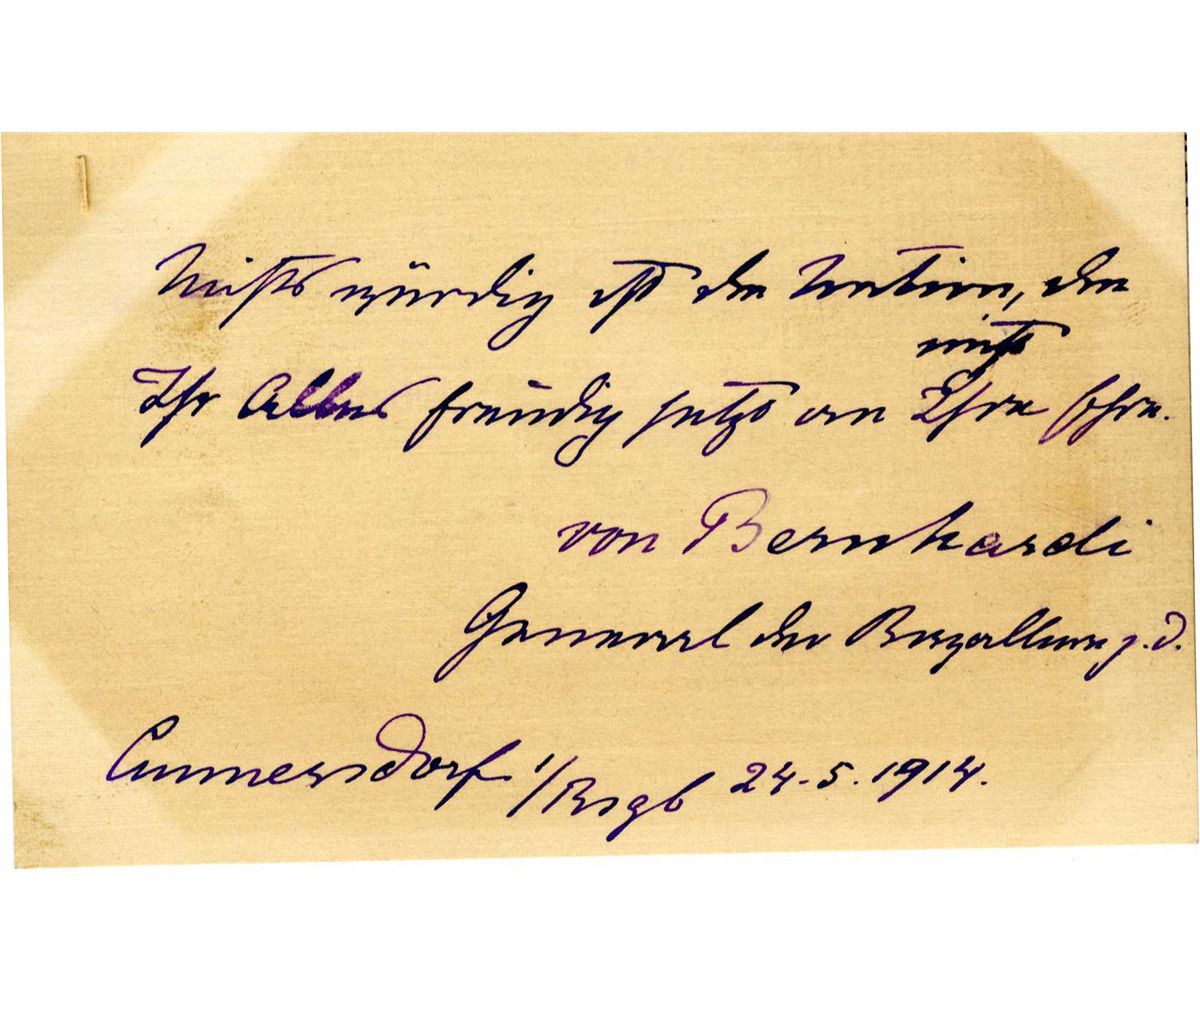 Nichtswürdig ist die Nation, die
nicht
Ihr Alles freudig setzt an Ihre Ehre.
von Bernhardi
General der Kavallerie z. D.
Cunnersdorf i/Rsgb 24.5.1914.